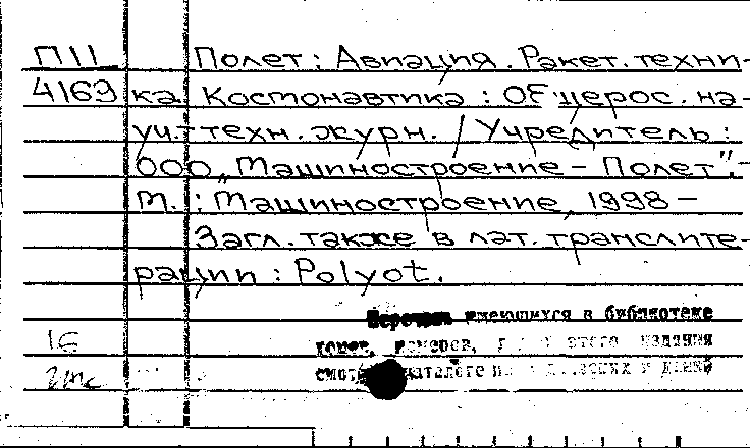 П11 Полет: Авиация. Ракет. техни-
4169 ка. Космонавтика: Общерос. на-
уч.-техн. журн. / Учредитель:
ООО „Машиностроение - Полет".-
М.: Машиностроение, 1998 -
Загл. также в лат. транслите-
рации: Polyot.
Перечень имеющихся в библиотеке
томов, номеров, этого издания
смотр каталоге
1Е